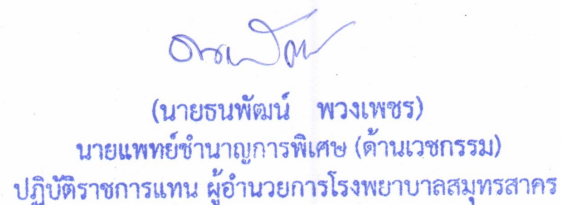 (นายธนพัฒน์ พวงเพชร)
นายแพทย์ชำนาญการพิเศษ (ด้านเวชกรรม)
ปฏิบัติราชการแทน ผู้อำนวยการโรงพยาบาลสมุทรสาคร